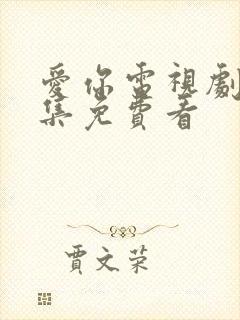 愛你電視劇
集免費看
賈文荣